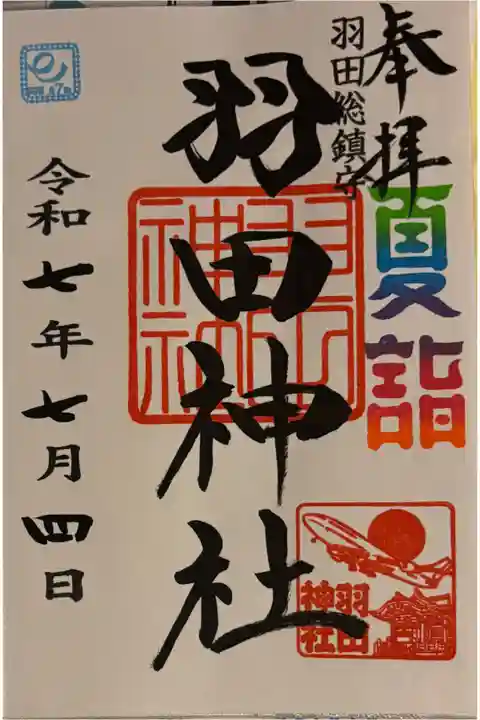 奉拝
夏詣
羽田総鎮守
羽田神社
羽田神社
羽田
神社
令和七年七月四日